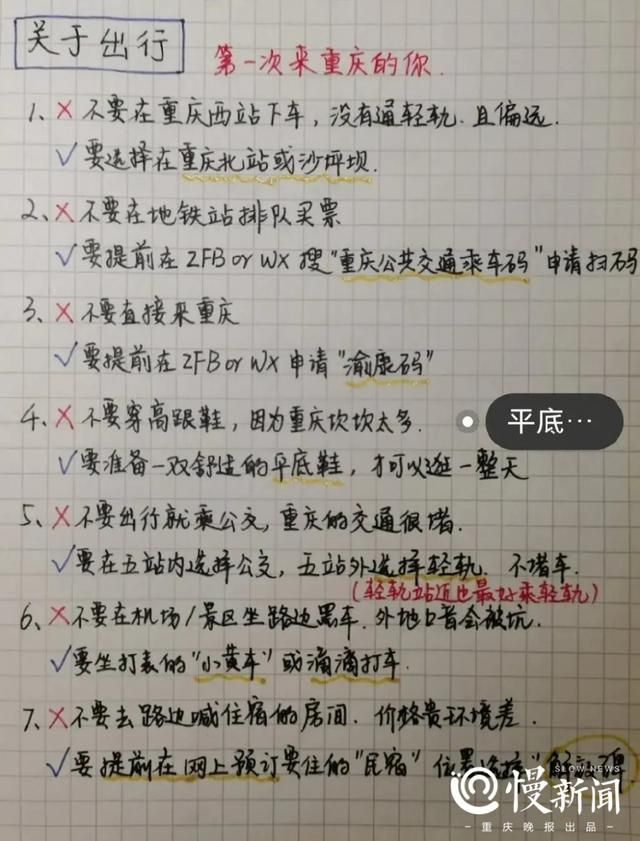 关于出行
第一次来重庆的你.
1、× 不要在重庆西站下车，没有通轻轨.且偏远.
√ 要选择在重庆北站或沙坪坝.
2、× 不要在地铁站排队买票
√ 要提前在ZFB or WX 搜"重庆公共交通乘车码"申请扫码
3、× 不要直接来重庆
√ 要提前在ZFB or WX 申请"渝康码"
4、× 不要穿高跟鞋，因为重庆坎坎太多.
平底…
√ 要准备一双舒适的平底鞋，才可以逛一整天
5、× 不要出行就乘公交，重庆的交通很堵.
√ 要在五站内选择公交，五站外选择轻轨.不堵车.
(轻轨站近也最好乘轻轨)
6、× 不要在机场/景区坐路边黑车.外地口音会被坑.
√ 要坐打表的"小黄车"或滴滴打车.
7、× 不要去路边喊住宿的房间.价格贵环境差.
√ 要提前在网上预订要住的"民宿"位置选择"解放碑
SLOW NEWS
慢新闻
·重庆晚报出品·